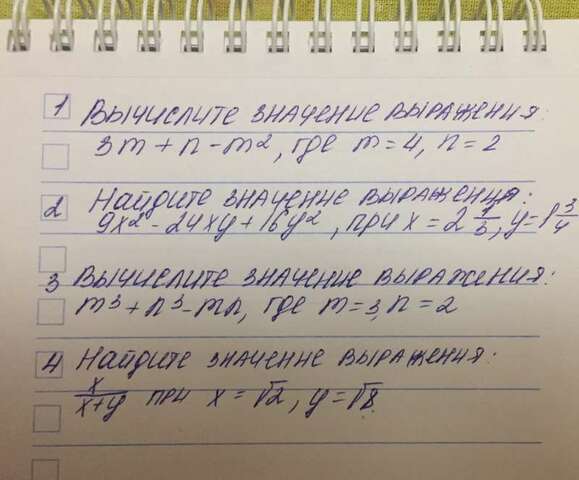 1 Вычислите значение выражения:
3m + n - m², где m = 4, n = 2
2 Найдите значение выражения:
9x² - 24xy + 16y², при x = 2 1/3, y = 1 3/4
3 Вычислите значение выражения:
m³ + n³ - mn, где m = 3, n = 2
4 Найдите значение выражения:
x/(x+y) при x = √2, y = √8.